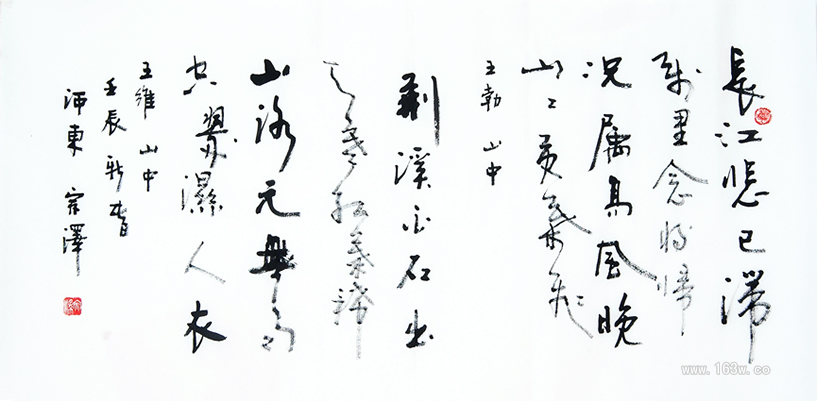 長江悲已滯
萬里念将歸
况属高風晚
山〻黄葉飛
王勃 山中
荆溪白石出
天寒红葉稀
山路元無雨
空翠濕人衣
王維 山中
壬辰新春
河東 宗澤
www.163w.co